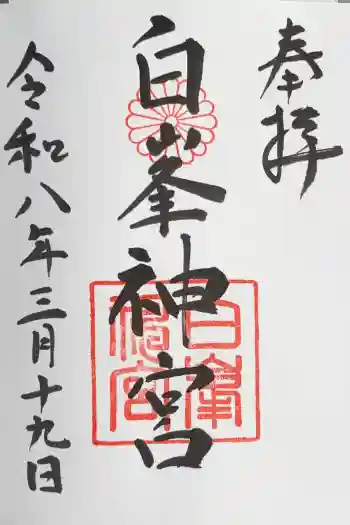 奉拝
白峯神宮
白峯
神宮
令和八年三月十九日